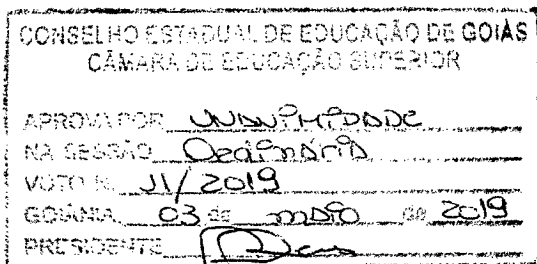 CONSELHO ESTADUAL DE EDUCAÇÃO DE GOIÁS
CÂMARA DE EDUCAÇÃO SUPERIOR
APROVA POR UNANIMIDADE
NA SESSÃO Ordinária
VOTO N. 11/2019
GOIÂNIA, 03 de maio de 2019
PRESIDENTE